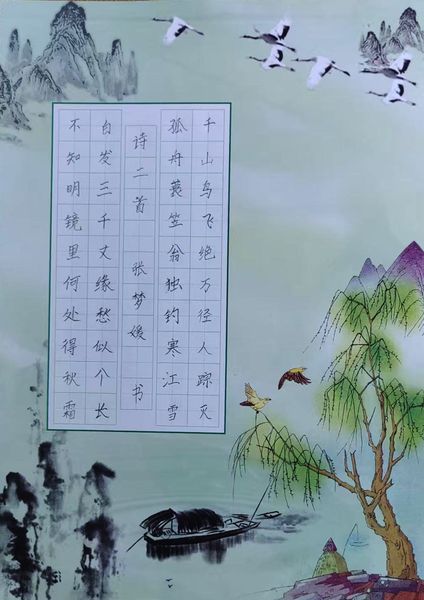 千山鸟飞绝万径人踪灭
孤舟蓑笠翁独钓寒江雪
诗二首 张梦媛 书
白发三千丈缘愁似个长
不知明镜里何处得秋霜